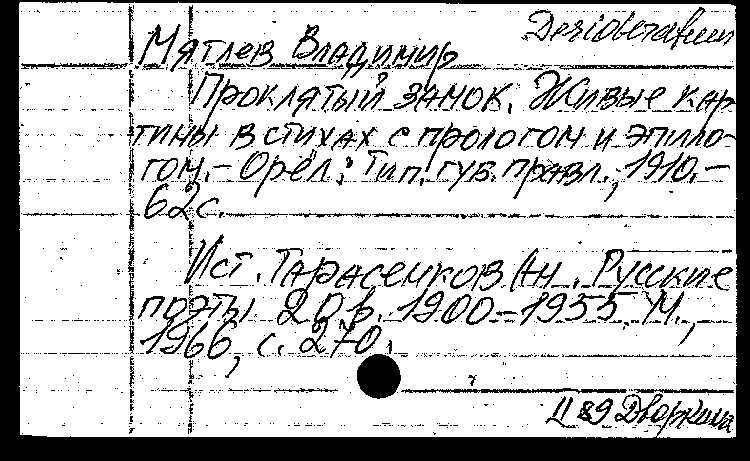 Desiderata
Мятлев Владимир
Проклятый замок. Живые кар-
тины в стихах с прологом и эпило-
гом. - Орёл: Тип. губ. правл., 1910. -
62 с.
Ист. Тарасенков Ан. Русские
поэты 20 в. 1900-1955. М.,
1966, с. 270.
II 89 Дворкина